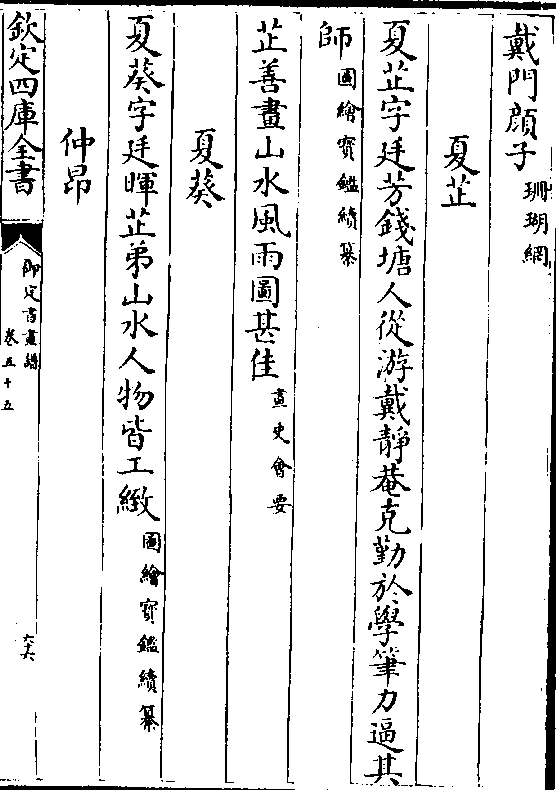 戴門顔子珊瑚網
夏芷
夏芷字廷芳錢塘人從游戴靜菴克勤於學筆力逼其
師圖繪寳鑑續纂
芷善畫山水風雨圖甚佳畫史會要
夏葵
夏葵字廷暉芷弟山水人物皆工緻圖繪寳鑑續纂
仲昂
欽定四庫全書
御定書畫譜
卷五十五
六六